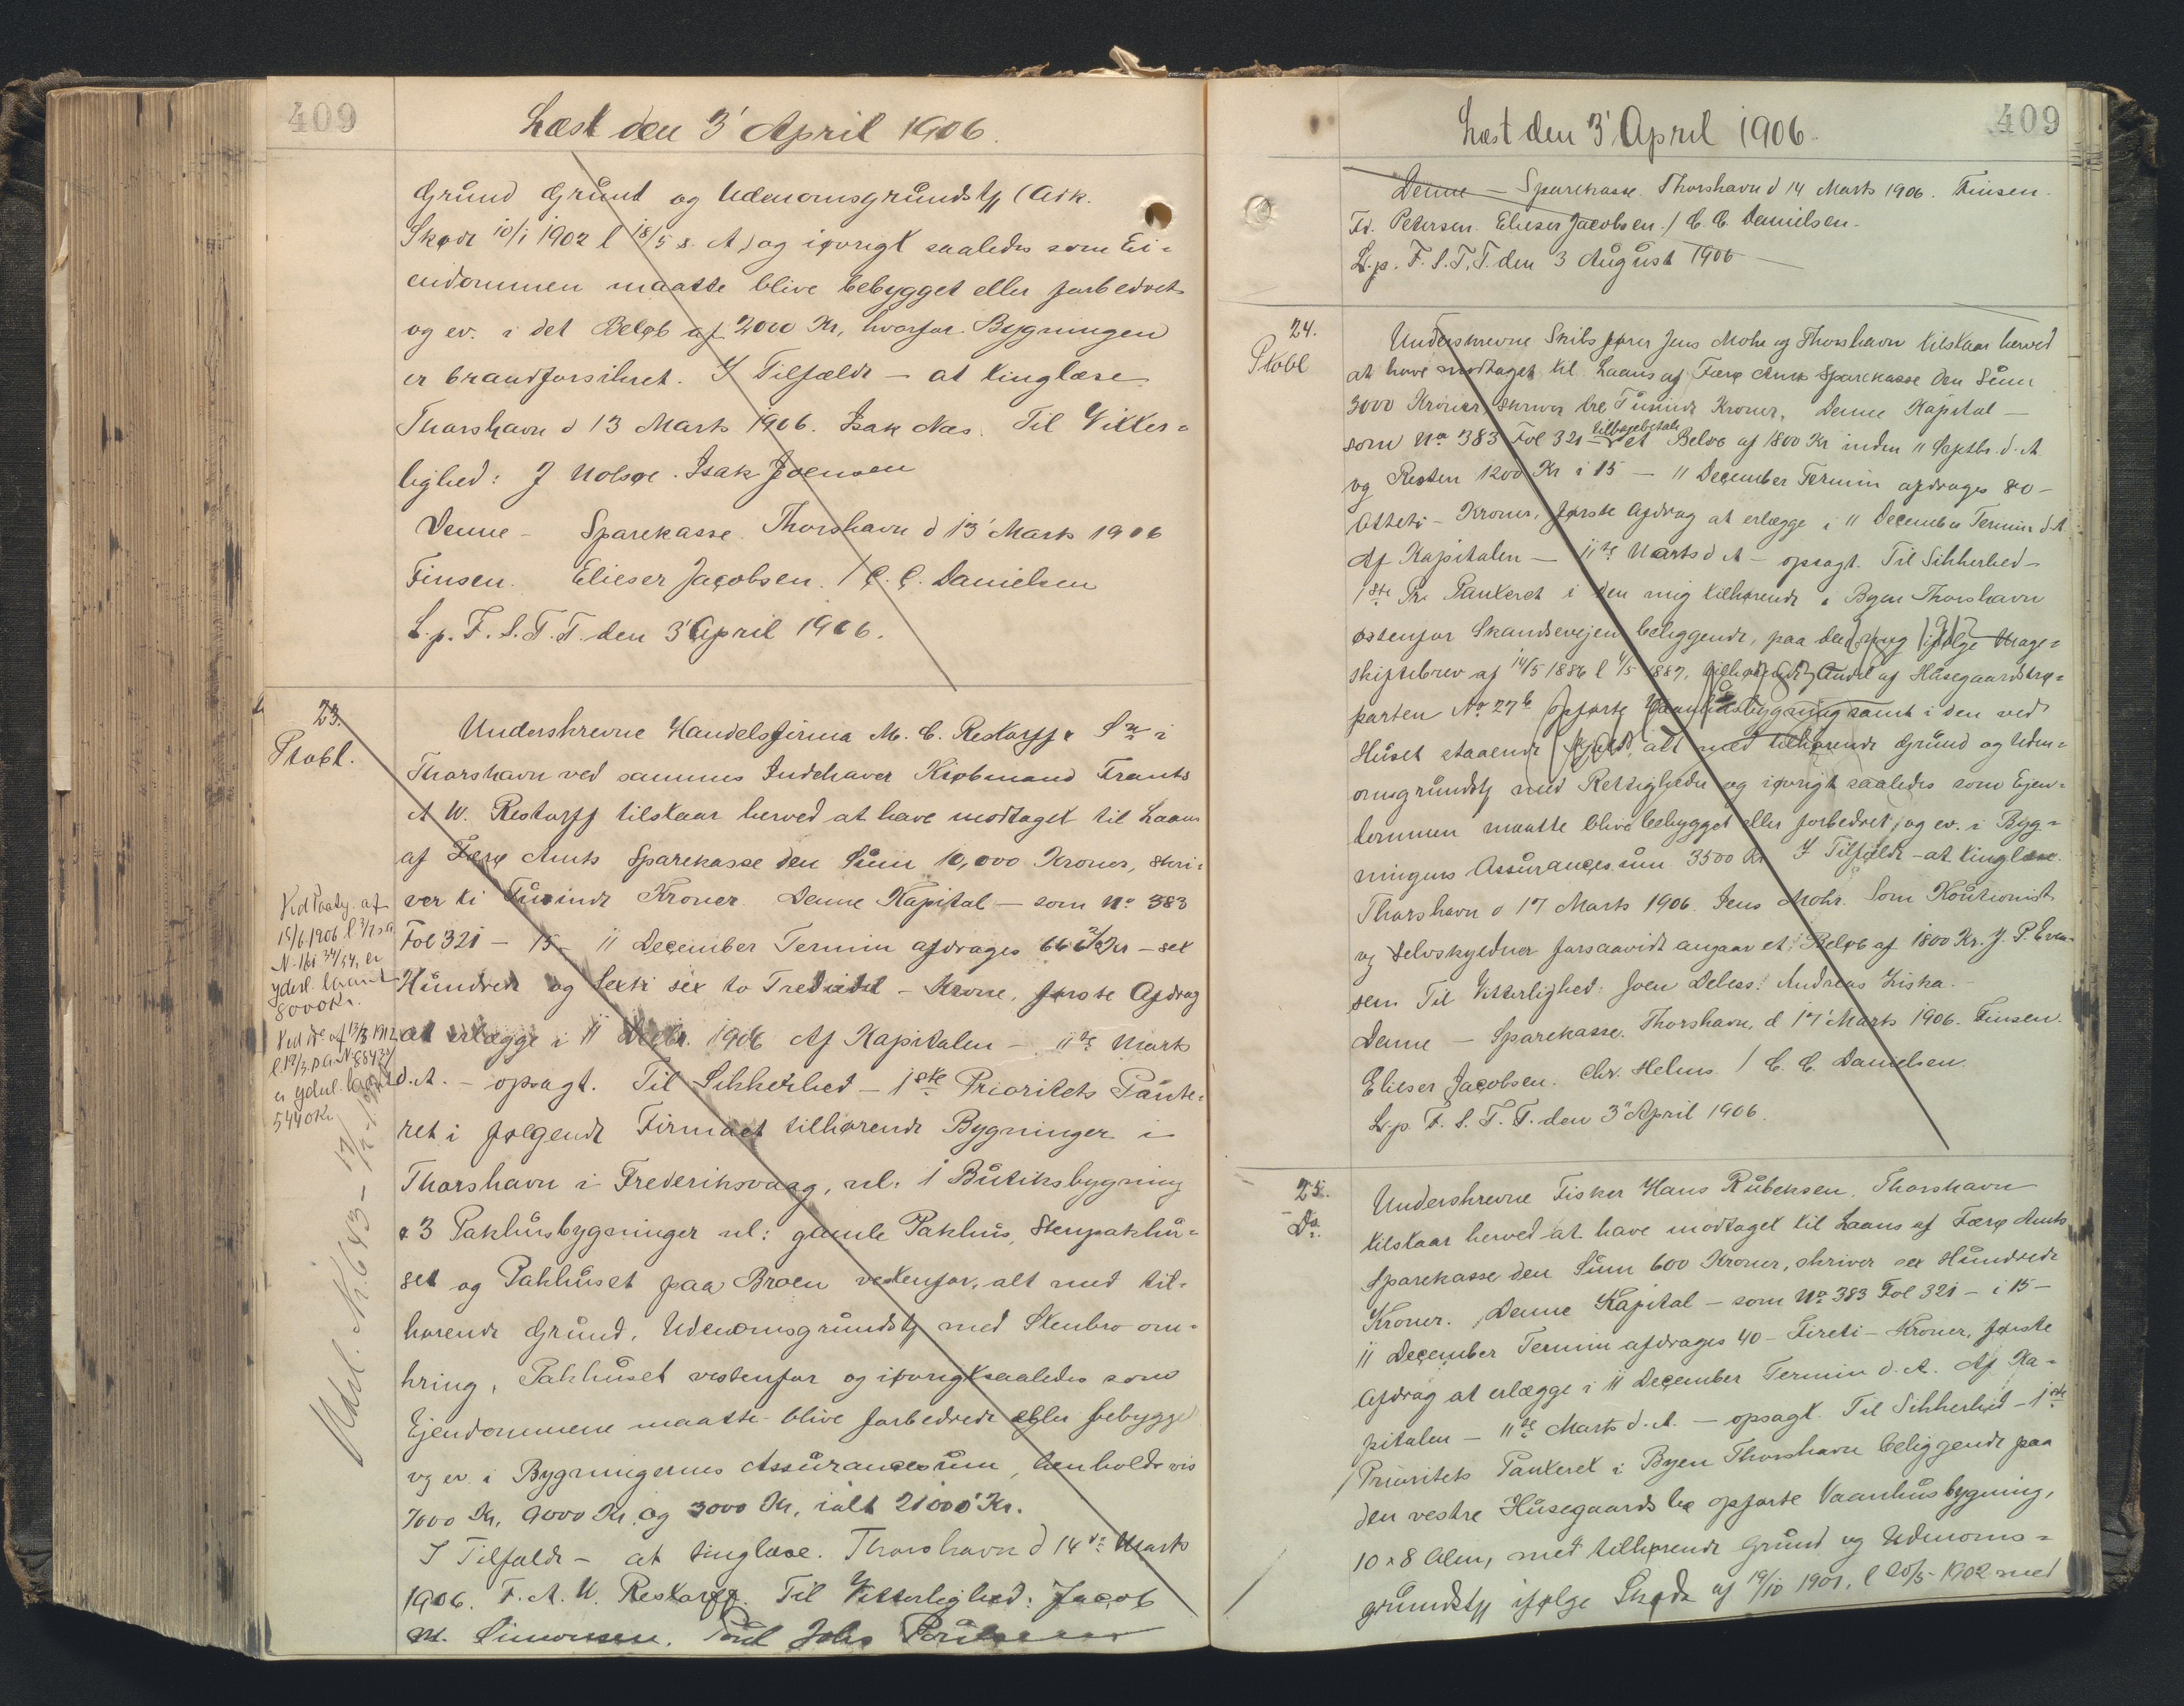 409
Læst den 3' April 1906.
Grund Grund og Udenomsgrundstk (Adk.
Skøde 10/1 1902 l 18/5 s. A) og iøvrigt saaledes som Ei=
endommen maatte blive bebygget eller forbedret
og ev. i det Beløb af 2000 Kr, hvorfor Bygningen
er brandforsikret. I Tilfælde – at tinglæse.
Thorshavn d 13 Marts 1906. Isak Næs. Til Vitter=
lighed: J Nolsøe. Isak Joensen
Denne – Sparekasse. Thorshavn d 13' Marts 1906
Finsen. Elieser Jacobsen. / C. C. Danielsen
L. p. F. S. T. T. den 3' April 1906.
23.
Ptobl.
Underskrevne Handelsfirma M. C. Restorff & Sn i
Thorshavn ved sammes Indehaver Kjøbmand Frants
A W. Restorff tilstaar herved at have modtaget til Laans
af Færø Amts Sparekasse den Sum 10,000 Kroner, skri=
ver ti Tusinde Kroner. Denne Kapital – som No 383
Fol 321 – 15 – 11 December Termin afdrages 666 2/3 Kr – sex
Hundrede og Sexti sex to Trediedel – Krone, første Afdrag
at erlægge i 11 Decbr. 1906 Af Kapitalen – 11te Marts
d. A. – opsagt. Til Sikkerhed – 1ste Prioritets Pante=
ret i følgende Firmaet tilhørende Bygninger i
Thorshavn i Frederiksvaag, nl: 1 Butiksbygning
& 3 Pakhusbygninger nl: gamle Pakhus, Stenpakhu=
set og Pakhuset paa Broen vestenfor, alt med til=
hørende Grund, Udenomsgrundstk med Stenbro om=
kring, Pakhuset vestenfor og iøvrigt saaledes som
Ejendommene maatte blive forbedrede eller bebygge
og ev. i Bygningernes Assurancesum, henholdsvis
7000 Kr, 9000 Kr. og 3000 Kr, ialt 21000 Kr.
I Tilfælde – at tinglæse. Thorshavn d 14de Marts
1906. F. A. W. Restorff. Til Vitterlighed: Jacob
M. Simonsen. Poul Johs
Ved Paateg. af
15/6 1906 l 3/7 s A
er
yderl. laant
8000 Kr.
Ved Do af 13/3 1912
er yderl. laant
5440 Kr
Udsl. N. 643 – 17/12
409
Læst den 3' April 1906.
Denne – Sparekasse. Thorshavn d 14 Marts 1906. Finsen.
Fr. Petersen. Elieser Jacobsen. / C. C. Danielsen.
L. p. F. S. T. T. den 3 August 1906
24.
Ptobl
Underskrevne Skibsfører Jens Mohr og Thorshavn tilstaar herved
at have modtaget til Laans af Færø Amts Sparekasse den Sum
3000 Kroner, skriver tre Tusinde Kroner. Denne Kapital –
som No 383 Fol 321 – tilbagebetale et Beløb af 1800 Kr inden 11 Septbr. d. A
og Resten 1200 Kr i 15 – 11 December Termin afdrages 80 –
Otteti – Kroner, første Afdrag at erlægge i 11 December Termin d. A.
Af Kapitalen – 11te Marts d A – opsagt. Til Sikkerhed –
1ste Pr. Panteret i den mig tilhørende i Byen Thorshavn
østenfor Skandsevejen beliggende, paa den mig ifølge Mage=
skiftebrev af 14/5 1886 l 4/5 1887, tilhørende Andel af Husegaardstrø=
parten No 27b opførte Vaanhusbygning samt i den ved
Huset staaende Hjald, alt med tilhørende Grund og Uden=
omsgrundstk med Rettigheder og iøvrigt saaledes som Ejen=
dommen maatte blive bebygget eller forbedret, og ev. i Byg=
ningens Assurancesum 3500 Kr I Tilfælde – at tinglæse.
Thorshavn d 17 Marts 1906. Jens Mohr. Som Kautionist
og Selvskyldner forsaavidt angaar et Beløb af 1800 Kr. J. P. Even=
sen Til Vitterlighed: Joen Deless. Andreas Ziska.
Denne – Sparekasse. Thorshavn, d 17' Marts 1906. Finsen.
Elieser Jacobsen. Chr. Helms. / C. C. Danielsen.
L. p. F. S. T. T. den 3' April 1906.
25.
Do.
Underskrevne Fisker Hans Rubeksen, Thorshavn
tilstaar herved at have modtaget til Laans af Færø Amts
Sparekasse den Sum 600 Kroner, skriver sex Hundrede
Kroner. Denne Kapital – som No 383 Fol 321 – i 15 –
11 December Termin afdrages 40 – Fireti – Kroner, første
Afdrag at erlægge i 11 December Termin d. A. Af Ka=
pitalen – 11te Marts d. A. – opsagt. Til Sikkerhed – 1ste
Prioritets Panteret i Byen Thorshavn beliggende paa
den vestre Husegaards trø opførte Vaanhusbygning,
10 x 8 Alen, med tilhørende Grund og Udenoms=
grundstk ifølge Skøde af 19/10 1901, l 20/5 1902 med